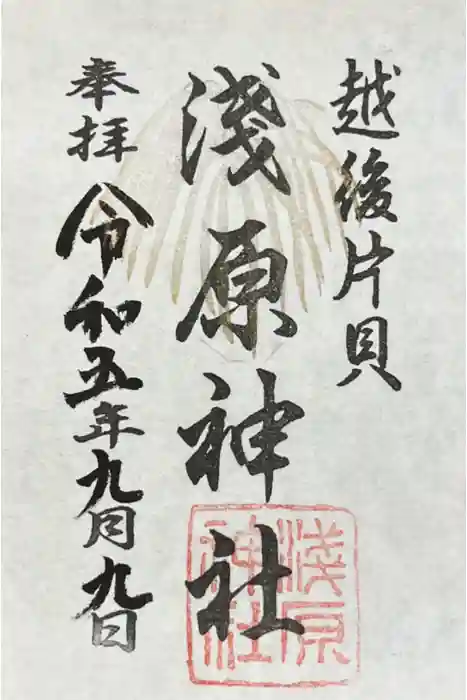 越後片貝
淺原神社
奉拝
令和五年九月九日
淺原
神社